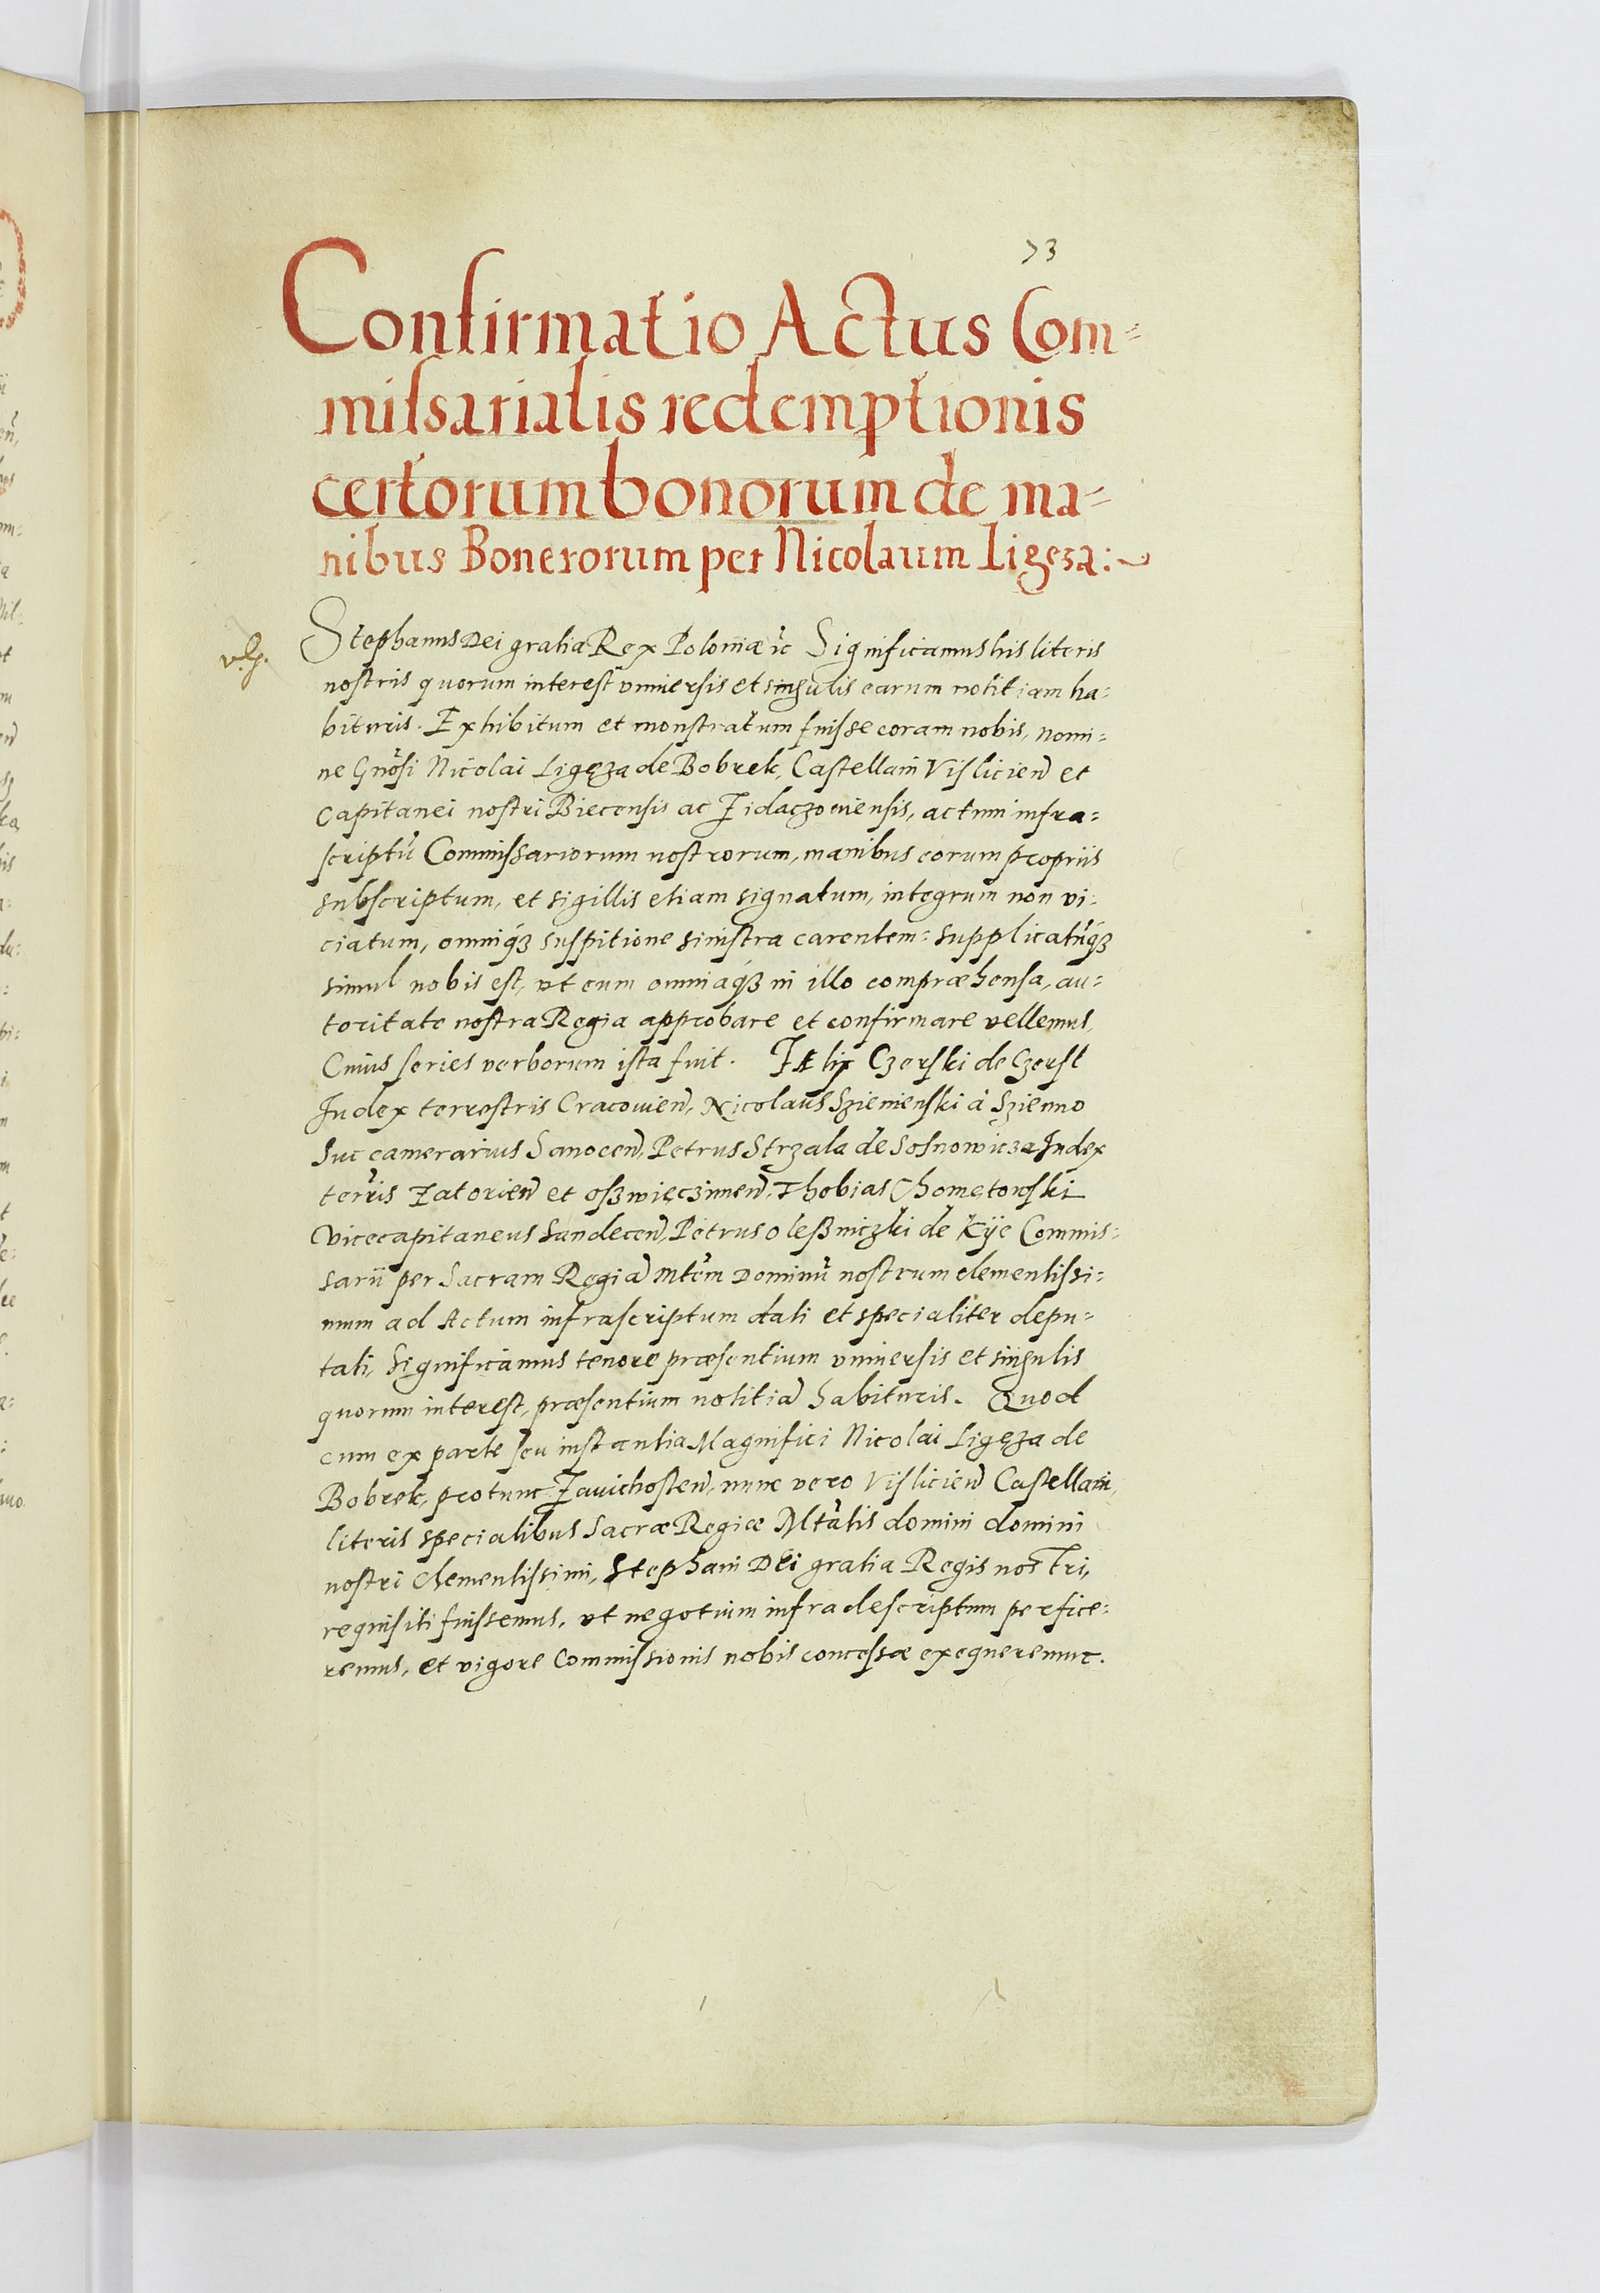 73
Confirmatio Actus Com=
missarialis redemptionis
certorum bonorum de ma=
nibus Bonerorum per Nicolaum Ligeza:
Stephanus Dei gratia Rex Poloniæ ic̃ Significamus his literis
nostris quorum interest vniuersis et singulis earum notitiam ha=
bituris. Exhibitum et monstratum fuisse coram nobis, nomi=
ne Gnõsi Nicolai Ligęza de Bobrek, Castellani Vislicieñ et
Capitanei nostri Biecensis ac Zidaczouiensis, actum infra=
scriptũ Commissariorum nostrorum, manibus eorum propriis
subscriptum, et sigillis etiam signatum, integrum non vi=
ciatum, omniqȝ suspitione sinistra carentem: supplicatũqȝ
simul nobis est, vt eum omniaqȝ in illo compræhensa, au=
toritate nostra Regia approbare et confirmare vellemus,
Cuius series verborum ista fuit. Fælix Czerski de Czerst
Iudex terrestris Cracouieñ, Nicolaus Szienienski à Szienno
Succamerarius Sanoceñ, Petrus Strzala de Sosnowicza Iudex
terr̃is Zatorieñ et oszwięczimeñ, Thobias Chometowski
Vicecapitaneus Sandeceñ, Petrus oleßniczki de Kije Commis=
sarii per Sacram Regiã Mtẽm Dominũ nostrum clementissi=
mum ad Actum infrascriptum dati et specialiter depu=
tati, Significamus tenore præsentium vniuersis et singulis
quorum interest, præsentium notitiã habituris. Quod
cum ex parte seu instantia Magnifici Nicolai Ligęza de
Bobrek, protunc Zauichosteñ, nunc vero Vislicieñ Castellani,
literis specialibus Sacræ Regiæ Mtãtis domini domini
nostri clementissimi, Stephani Dei gratia Regis nostri,
requisiti fuissemus, vt negotium infradescriptum perfice=
remus, et vigore Commissionis nobis concessæ exequeremur.